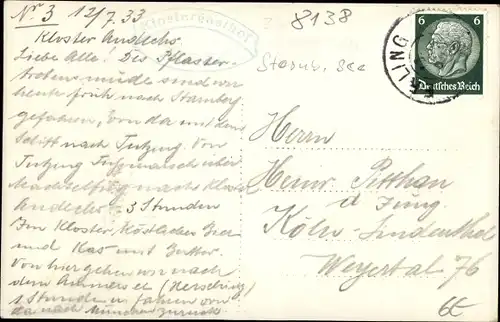 No 3 12/7.33
Klostergasthof
8138
Kloster Andechs.
Starnb. See
LING
6 6
Deutsches Reich
Liebe Alle! Des Pflaster-
tretens müde sind wir
heute früh nach Starnberg
gefahren, von da mit dem
Schiff nach Tutzing. Von
Tutzing Fußmarsch über
Machtlfing nach Kloster
Andechs. 3 Stunden
Im Kloster köstliches Bier
und Käs mit Butter.
Von hier gehen wir nach
dem Ammersee (Herrsching)
1 Stunde u. fahren von
da nach München zurück.
Herrn
Heinr. Pitthan
d. Jung.
Köln-Lindenthal
Weyertal 76